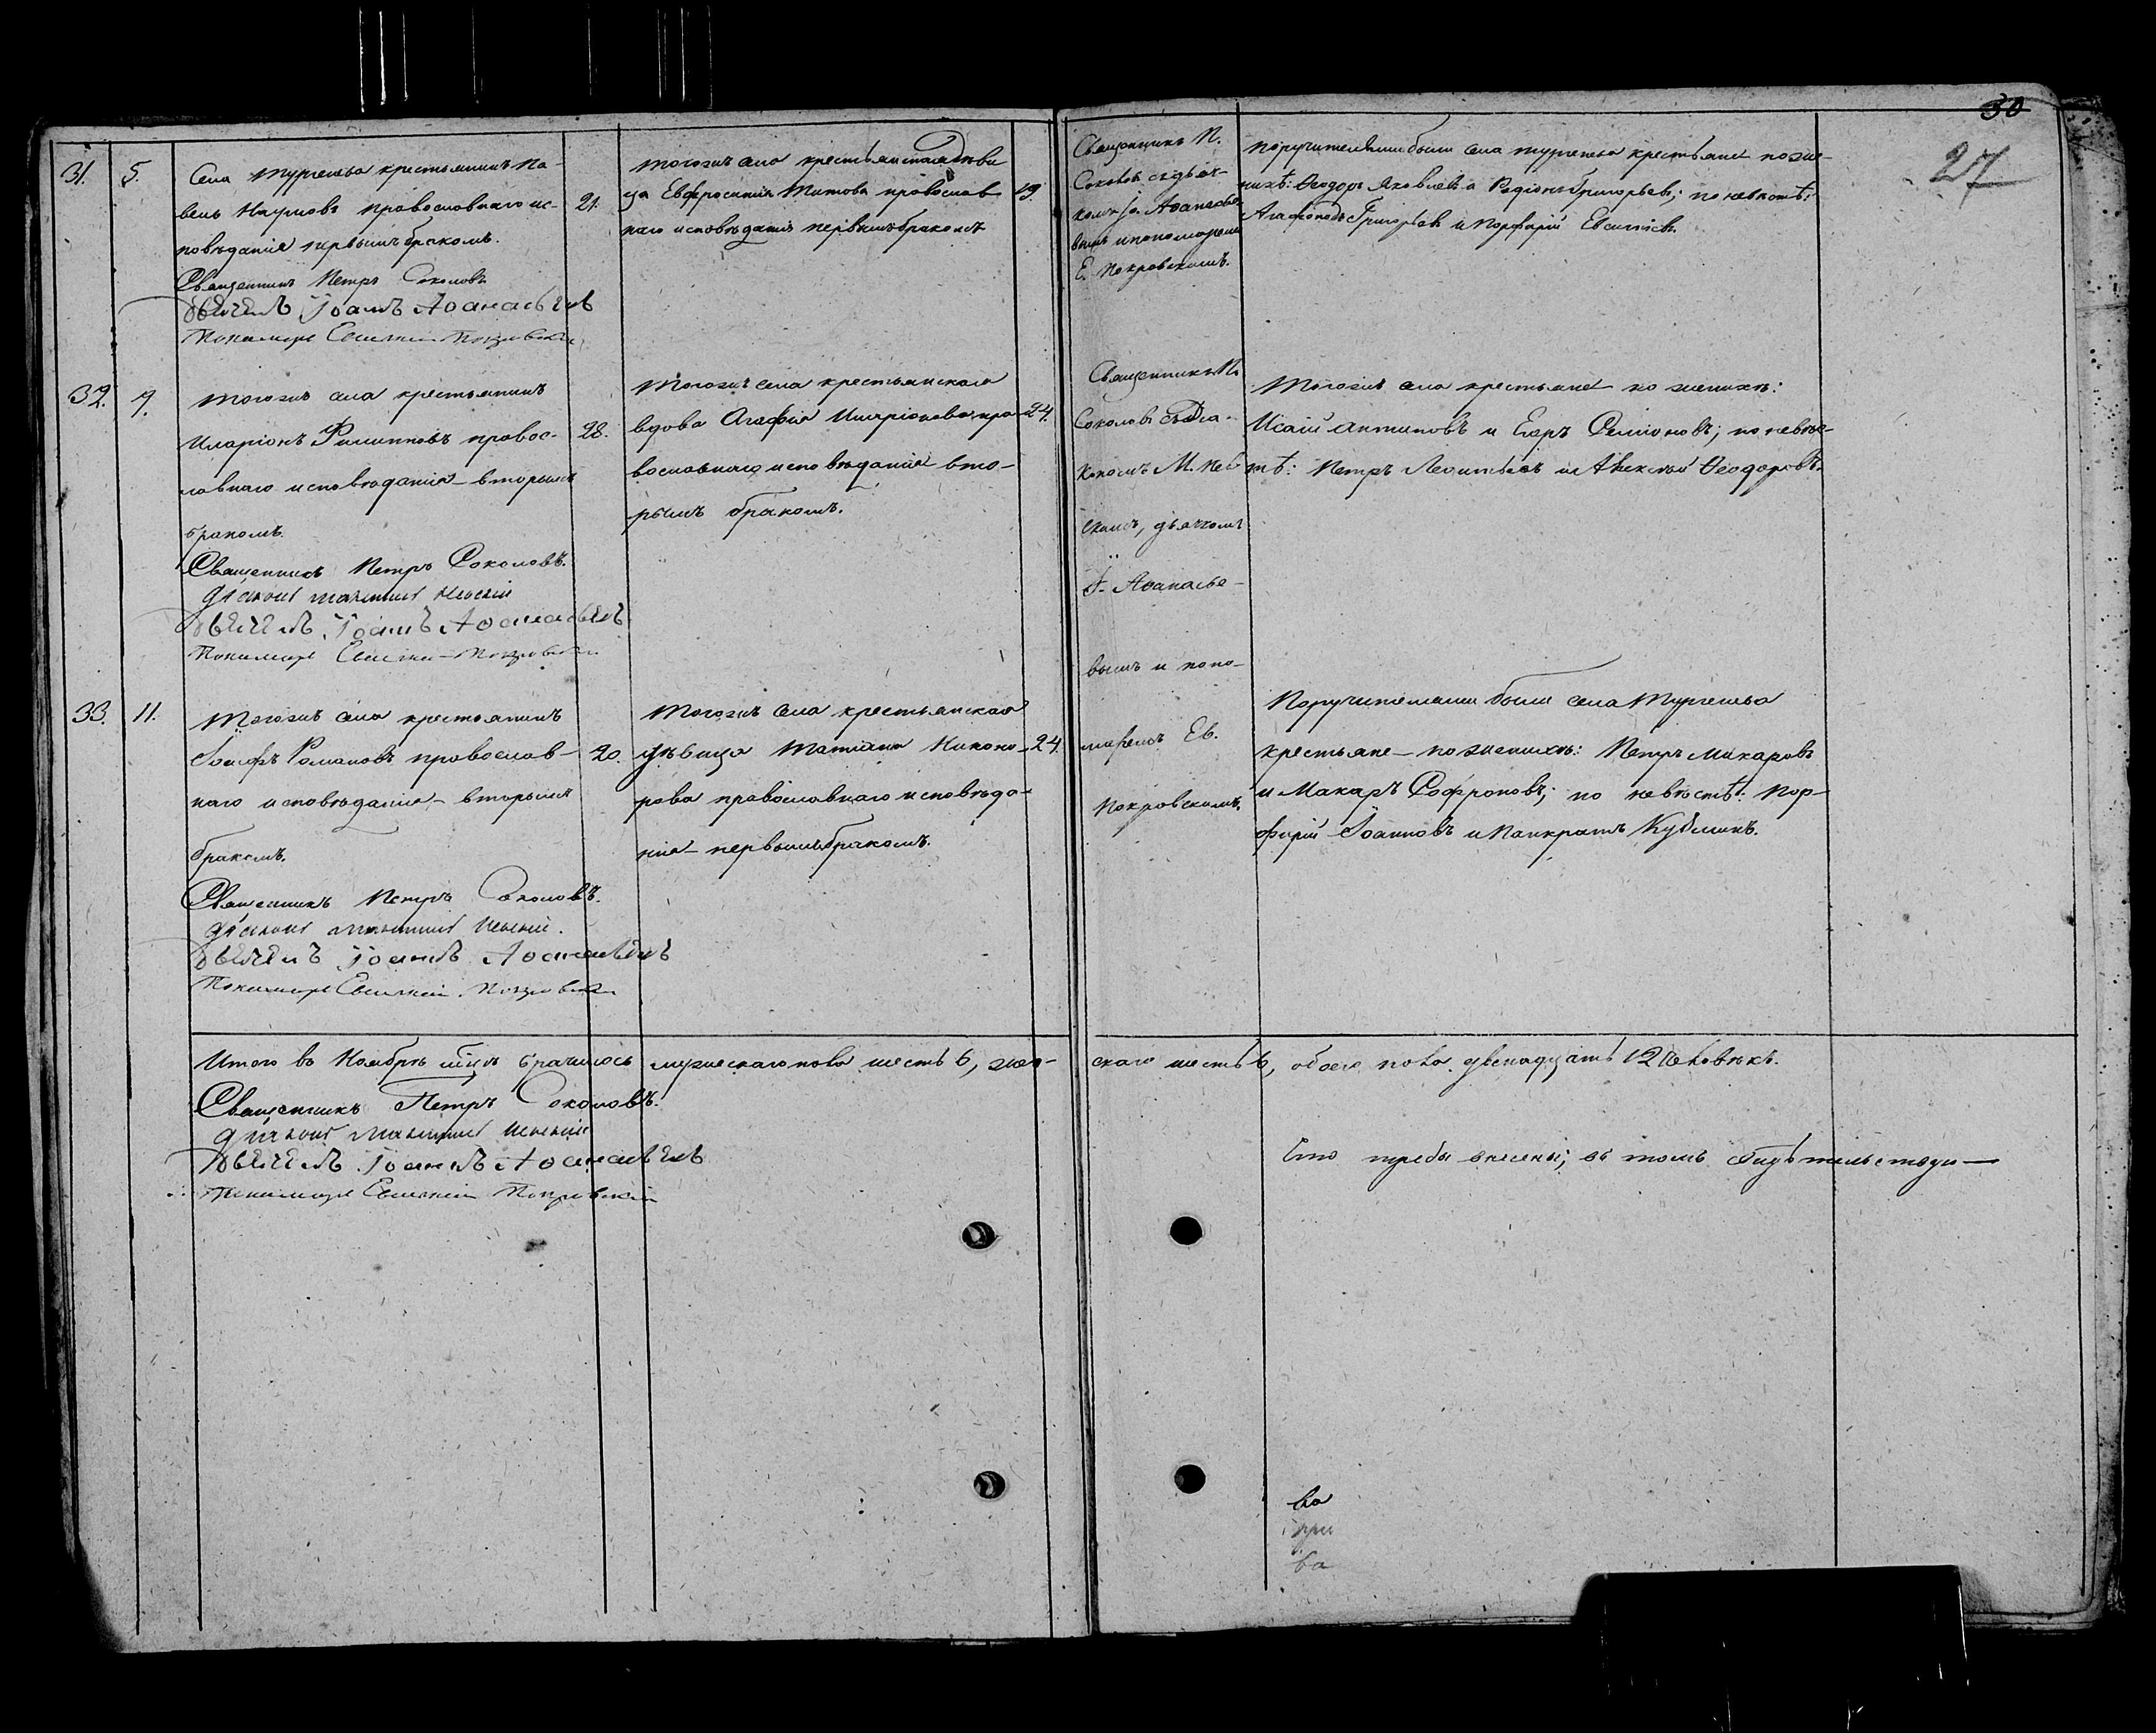 30
27
31. 5.
Села Тургенева крестьянинъ Па-
велъ Наумовъ православнаго ис-
повѣданія первымъ бракомъ.
21.
Священникъ Петръ Соколовъ
Дьячекъ Іоаннъ Аѳанасьевъ
Пономарь Евсигній Покровскій
тогожъ села крестьянская дѣви
ца Евфросинія Титова православ
наго исповѣданія первымъ бракомъ
19.
Священникъ П.
Соколовъ съ дьяч-
комъ Іо. Аѳанасье-
вымъ и пономаремъ
Е. Покровскимъ.
Поручителями были села Тургенева крестьяне по же-
нихѣ: Ѳеодоръ Яковлевъ и Родіонъ Григорьевъ; по невѣстѣ:
Агафонъ Григорьевъ и Порфирій
32. 9.
Тогожъ села крестьянинъ
Иларіонъ Филипповъ правос-
лавнаго исповѣданія вторымъ
бракомъ.
28.
Священникъ Петръ Соколовъ.
Діаконъ Невскій
Дьячекъ Іоаннъ Аѳанасьевъ
Пономарь Евсигній Покровскій
Тогожъ села крестьянская
вдова Агафія Иларіонова пра-
вославнаго исповѣданія вто-
рымъ бракомъ.
24.
Священникъ П.
Соколовъ съ діа-
кономъ М. Нев
скимъ, дьячкомъ
І. Аѳанасье-
вымъ и поно-
маремъ Ев.
Покровскимъ.
Тогожъ села крестьяне по женихѣ:
Исаій Антиповъ и Егоръ Семіоновъ; по невѣс-
тѣ: Петръ Леонтьевъ и Алексѣй Ѳеодоровъ.
33. 11.
Тогожъ села крестьянинъ
Іосифъ Романовъ православ-
наго исповѣданія, вторымъ
бракомъ.
20.
Священникъ Петръ Соколовъ.
Діаконъ Невскій.
Дьячекъ Іоаннъ Аѳанасьевъ
Пономарь Евсигній Покровскій
Тогожъ села крестьянская
дѣвица Татіана Никано-
рова православнаго исповѣда-
нія первымъ бракомъ.
24.
Поручителями были села Тургенева
крестьяне по женихѣ: Петръ Макаровъ
и Макаръ Софроновъ; по невѣстѣ: Пор-
фирій Іоанновъ и Панкратъ Кузминъ.
Итого въ Ноябрѣ мцѣ брачилось мужескаго пола шесть 6, жен-
скаго шесть 6, обоего пола двенадцать 12 человѣкъ.
Священникъ Петръ Соколовъ.
Діаконъ Невскій
Дьячекъ Іоаннъ Аѳанасьевъ
Пономарь Евсигній Покровскій
Что требы внесены; въ томъ свидѣтельствую